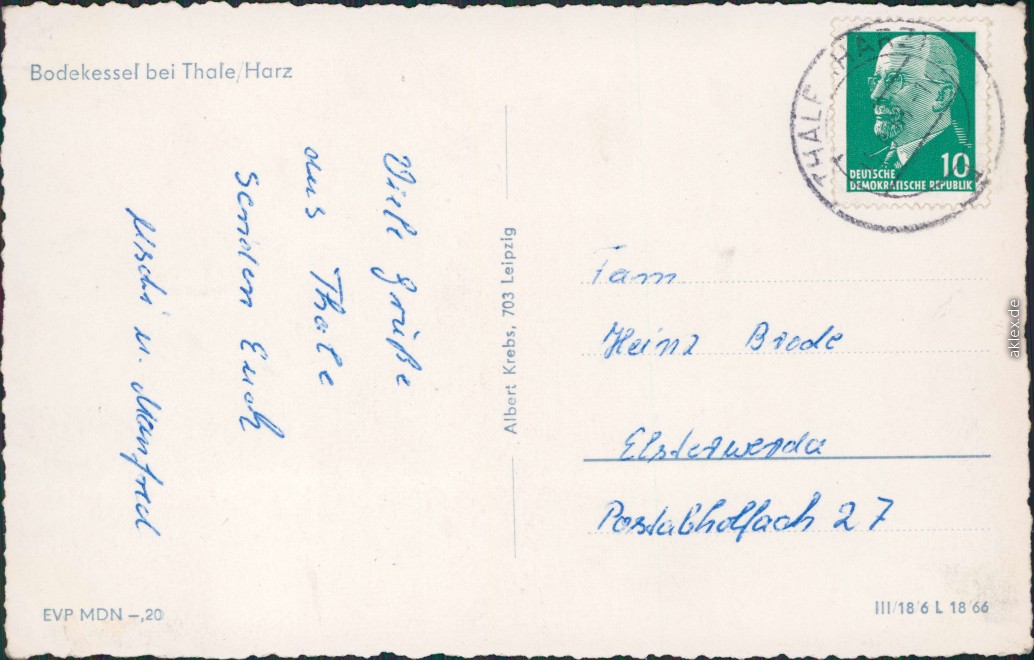 Bodekessel bei Thale/Harz
Viele Grüße
aus Thale
senden Euch
Uschi u. Manfred
Albert Krebs, 703 Leipzig
THALE (HARZ)
10
DEUTSCHE
DEMOKRATISCHE REPUBLIK
Fam
Heinz Brode
Elsterwerda
Postabholfach 27
EVP MDN –,20
III/18 6 L 18 66
aklex.de